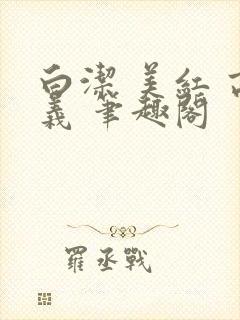 白潔 美紅 高
義 筆趣閣
羅丞戰